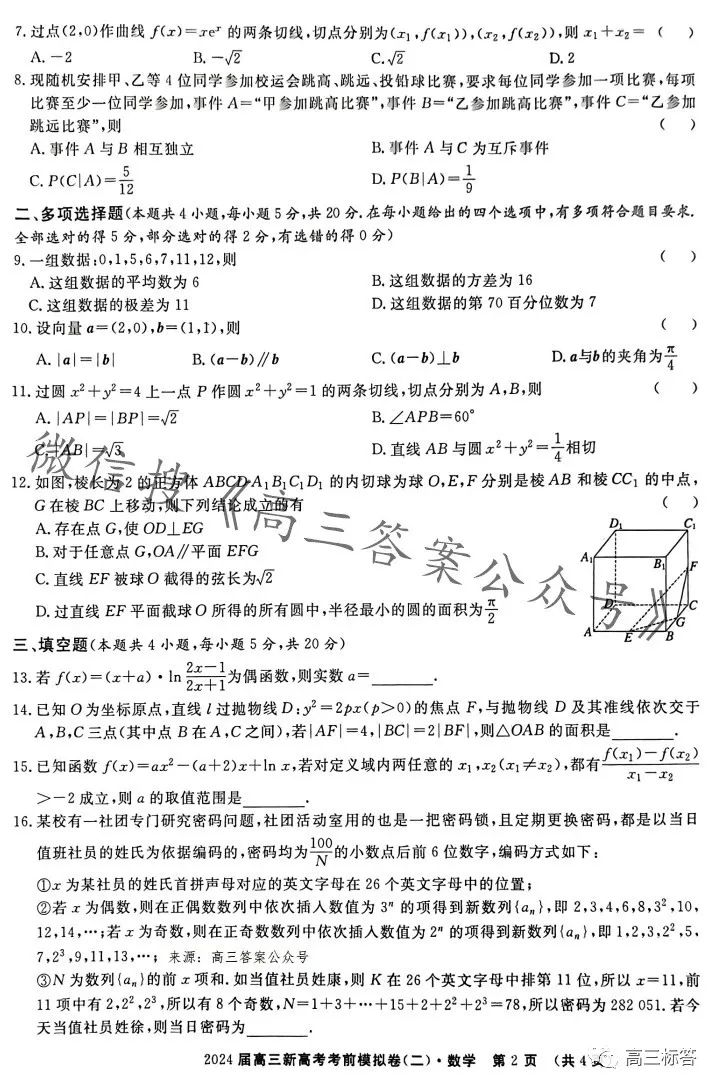 7.过点(2,0)作曲线 f(x)=xeˣ 的两条切线,切点分别为(x₁,f(x₁)),(x₂,f(x₂)),则 x₁+x₂= ( )
A.-2 B.-√2 C.√2 D.2
8.现随机安排甲、乙等 4 位同学参加校运会跳高、跳远、投铅球比赛,要求每位同学参加一项比赛,每项
比赛至少一位同学参加,事件 A=“甲参加跳高比赛”,事件 B=“乙参加跳高比赛”,事件 C=“乙参加
跳远比赛”,则 ( )
A.事件 A 与 B 相互独立 B.事件 A 与 C 为互斥事件
C.P(C|A)=5/12 D.P(B|A)=1/9
二、多项选择题(本题共 4 小题,每小题 5 分,共 20 分.在每小题给出的四个选项中,有多项符合题目要求.
全部选对的得 5 分,部分选对的得 2 分,有选错的得 0 分)
9.一组数据:0,1,5,6,7,11,12,则 ( )
A.这组数据的平均数为 6 B.这组数据的方差为 16
C.这组数据的极差为 11 D.这组数据的第 70 百分位数为 7
10.设向量 a=(2,0),b=(1,1),则 ( )
A.|a|=|b| B.(a-b)∥b C.(a-b)⊥b D.a与b的夹角为π/4
11.过圆 x²+y²=4 上一点 P 作圆 x²+y²=1 的两条切线,切点分别为 A,B,则 ( )
A.|AP|=|BP|=√2 B.∠APB=60°
C.|AB|=√3 D.直线 AB 与圆 x²+y²=1/4相切
12.如图,棱长为 2 的正方体 ABCD-A₁B₁C₁D₁ 的内切球为球 O,E,F 分别是棱 AB 和棱 CC₁ 的中点,
G 在棱 BC 上移动,则下列结论成立的有 ( )
A.存在点 G,使 OD⊥EG
B.对于任意点 G,OA∥平面 EFG
C.直线 EF 被球 O 截得的弦长为√2
D.过直线 EF 平面截球 O 所得的所有圆中,半径最小的圆的面积为π/2
D₁ C₁
A₁ B₁
F
D C
G
A E B
三、填空题(本题共 4 小题,每小题 5 分,共 20 分)
13.若 f(x)=(x+a)·ln (2x-1)/(2x+1)为偶函数,则实数 a=________.
14.已知 O 为坐标原点,直线 l 过抛物线 D:y²=2px(p>0)的焦点 F,与抛物线 D 及其准线依次交于
A,B,C 三点(其中点 B 在 A,C 之间),若|AF|=4,|BC|=2|BF|,则△OAB 的面积是________.
15.已知函数 f(x)=ax²-(a+2)x+ln x,若对定义域内两任意的 x₁,x₂(x₁≠x₂),都有(f(x₁)-f(x₂))/(x₁-x₂)
>-2 成立,则 a 的取值范围是________.
16.某校有一社团专门研究密码问题,社团活动室用的也是一把密码锁,且定期更换密码,都是以当日
值班社员的姓氏为依据编码的,密码均为100/N的小数点后前 6 位数字,编码方式如下:
①x 为某社员的姓氏首拼声母对应的英文字母在 26 个英文字母中的位置;
②若 x 为偶数,则在正偶数数列中依次插入数值为 3ⁿ 的项得到新数列{aₙ},即 2,3,4,6,8,3²,10,
12,14,…;若 x 为奇数,则在正奇数数列中依次插入数值为 2ⁿ 的项得到新数列{aₙ},即 1,2,3,2²,5,
7,2³,9,11,13,…; 来源:高三答案公众号
③N 为数列{aₙ}的前 x 项和.如当值社员姓康,则 K 在 26 个英文字母中排第 11 位,所以 x=11,前
11 项中有 2,2²,2³,所以有 8 个奇数,N=1+3+…+15+2+2²+2³=78,所以密码为 282 051.若今
天当值社员姓徐,则当日密码为________.
2024 届高三新高考考前模拟卷(二)·数学 第 2 页 (共 4 页
微信搜《高三答案公众号》
高三标答